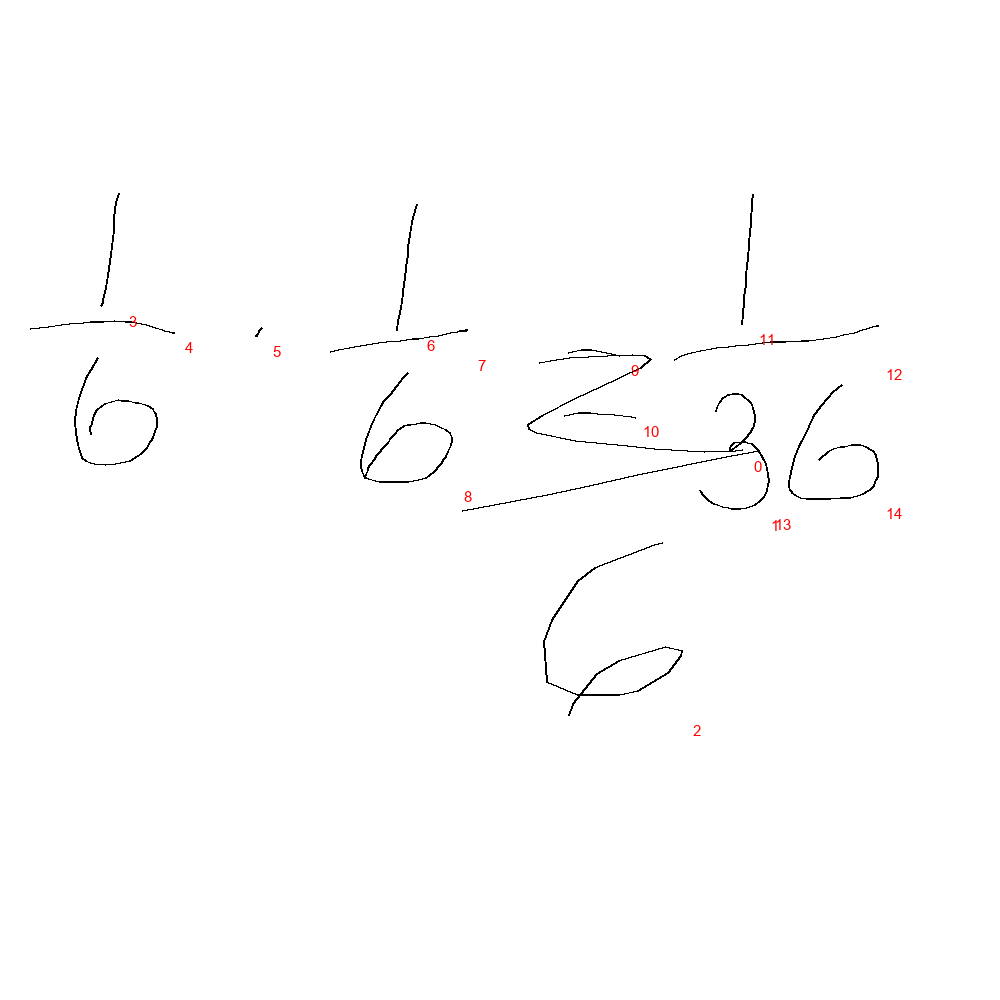 1/6 · 1/6 = 1/36
2/6
3
4
5
6
7
8
9
10
11
12
0
1
13
14
2